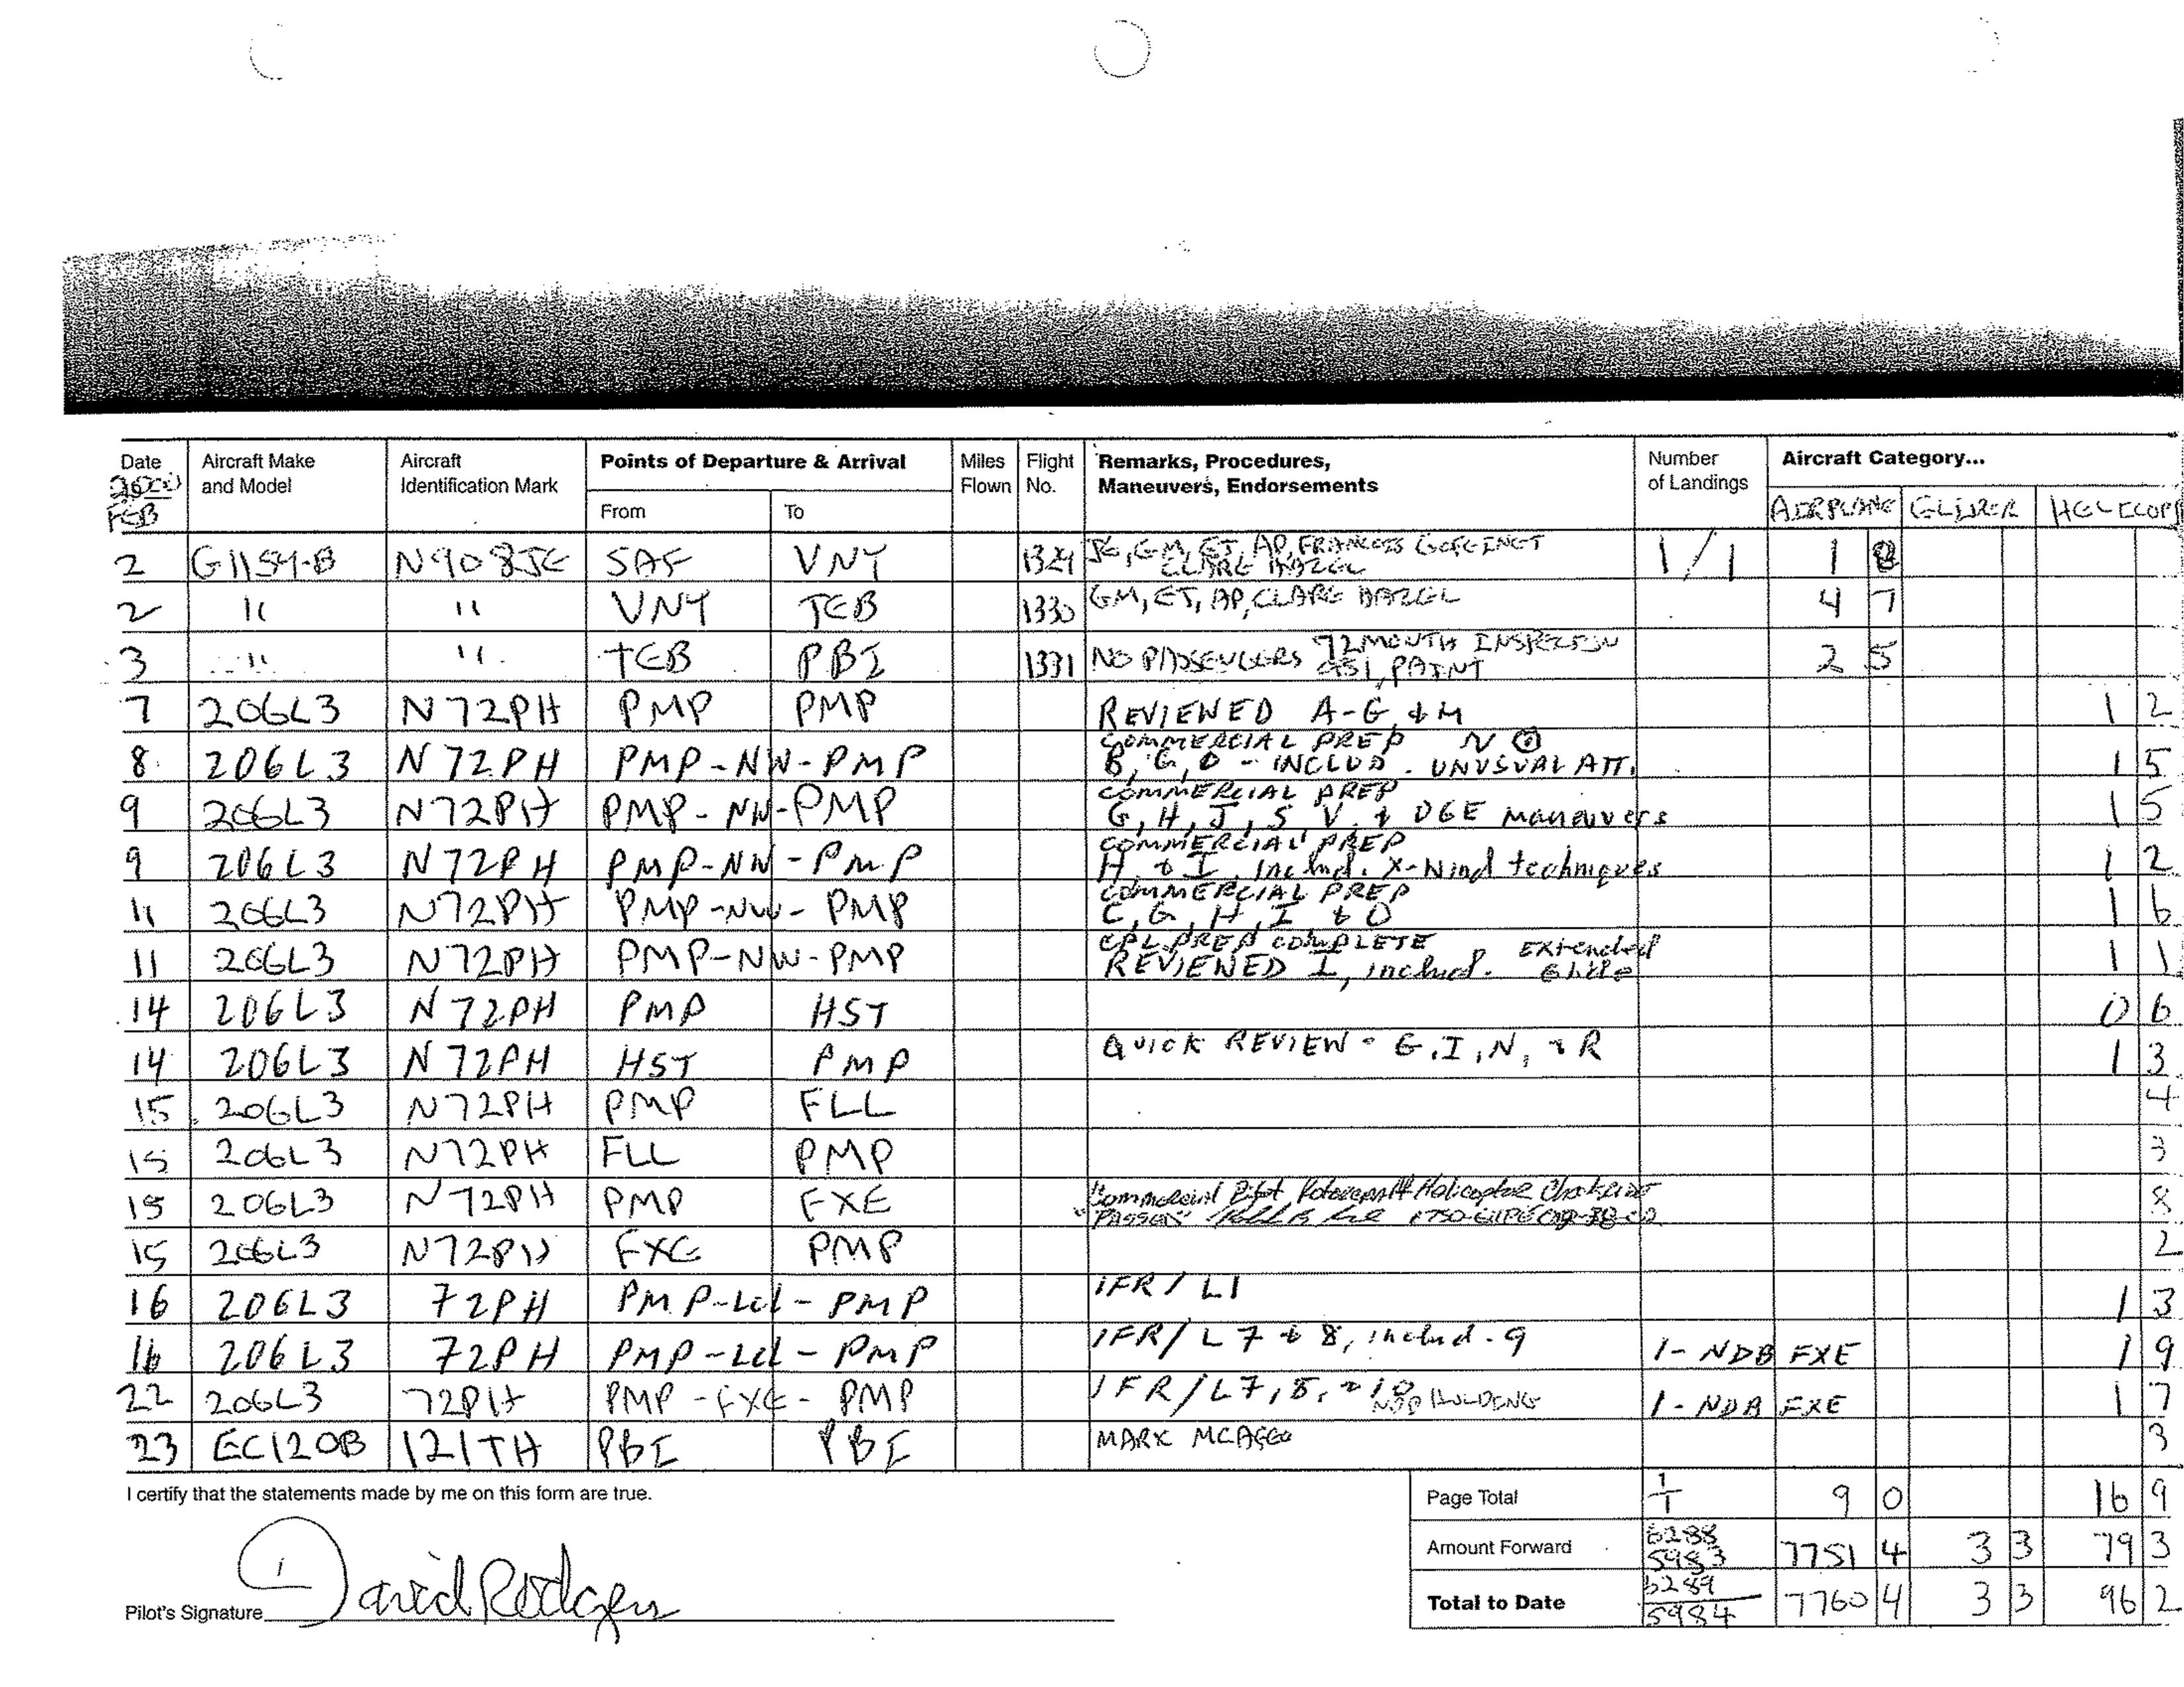 Date Aircraft Make Aircraft Points of Departure & Arrival Miles Flight Remarks, Procedures, Number Aircraft Category...
2000 and Model Identification Mark Flown No. Maneuvers, Endorsements of Landings
FEB From To AIRPLANE GLIDER HELICOPT
2 G1159-B N908JE SAF VNY 1329 JE, GM, ET, AP, 1/1 1 8
CLARE HAZEL
2 " " VNY TEB 1330 GM, ET, AP, CLARE HAZEL 4 7
3 " " TEB PBI 1331 NO PASSENGERS 72 MONTH INSPECTION 2 5
PAINT
7 206L3 N72PH PMP PMP REVIEWED A-G, + M 1 2
8 206L3 N72PH PMP-NW-PMP COMMERCIAL PREP N
B, G, O - INCLUD. UNUSUAL ATT. 1 5
9 206L3 N72PH PMP-NW-PMP COMMERCIAL PREP
G, H, J, S, V, + OGE maneuvers 1 5
9 206L3 N72PH PMP-NW-PMP COMMERCIAL PREP
H + I, Includ. X-Wind techniques 1 2
11 206L3 N72PH PMP-NW-PMP COMMERCIAL PREP
C, G, H, I + O 1 6
11 206L3 N72PH PMP-NW-PMP CPL PREP COMPLETE Extended
REVIEWED I, includ. Glide 1 1
14 206L3 N72PH PMP HST 0 6
14 206L3 N72PH HST PMP QUICK REVIEW - G, I, N, + R 1 3
15 206L3 N72PH PMP FLL 4
15 206L3 N72PH FLL PMP 3
15 206L3 N72PH PMP FXE Commercial Pilot Rotorcraft Helicopter Checkride 8
15 206L3 N72PH FXE PMP 2
16 206L3 72PH PMP-Lcl-PMP IFR / L1 1 3
16 206L3 72PH PMP-Lcl-PMP IFR / L 7 + 8, includ. 9 1 - NDB FXE 1 9
22 206L3 72PH PMP-FXE-PMP IFR / L7, 8, + 10 NDB HOLDING 1 - NDB FXE 1 7
23 EC120B 121TH PBI PBI MARK 3
I certify that the statements made by me on this form are true. Page Total 1/1 9 0 16 9
Amount Forward 6288 5983 7751 4 3 3 79 3
Pilot's Signature David Rodgers Total to Date 6289 5984 7760 4 3 3 96 2